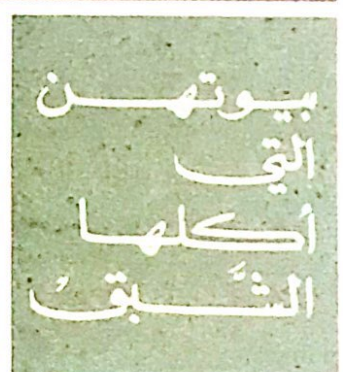 بيوتهن
التي
أكلها
الشَّبقُ